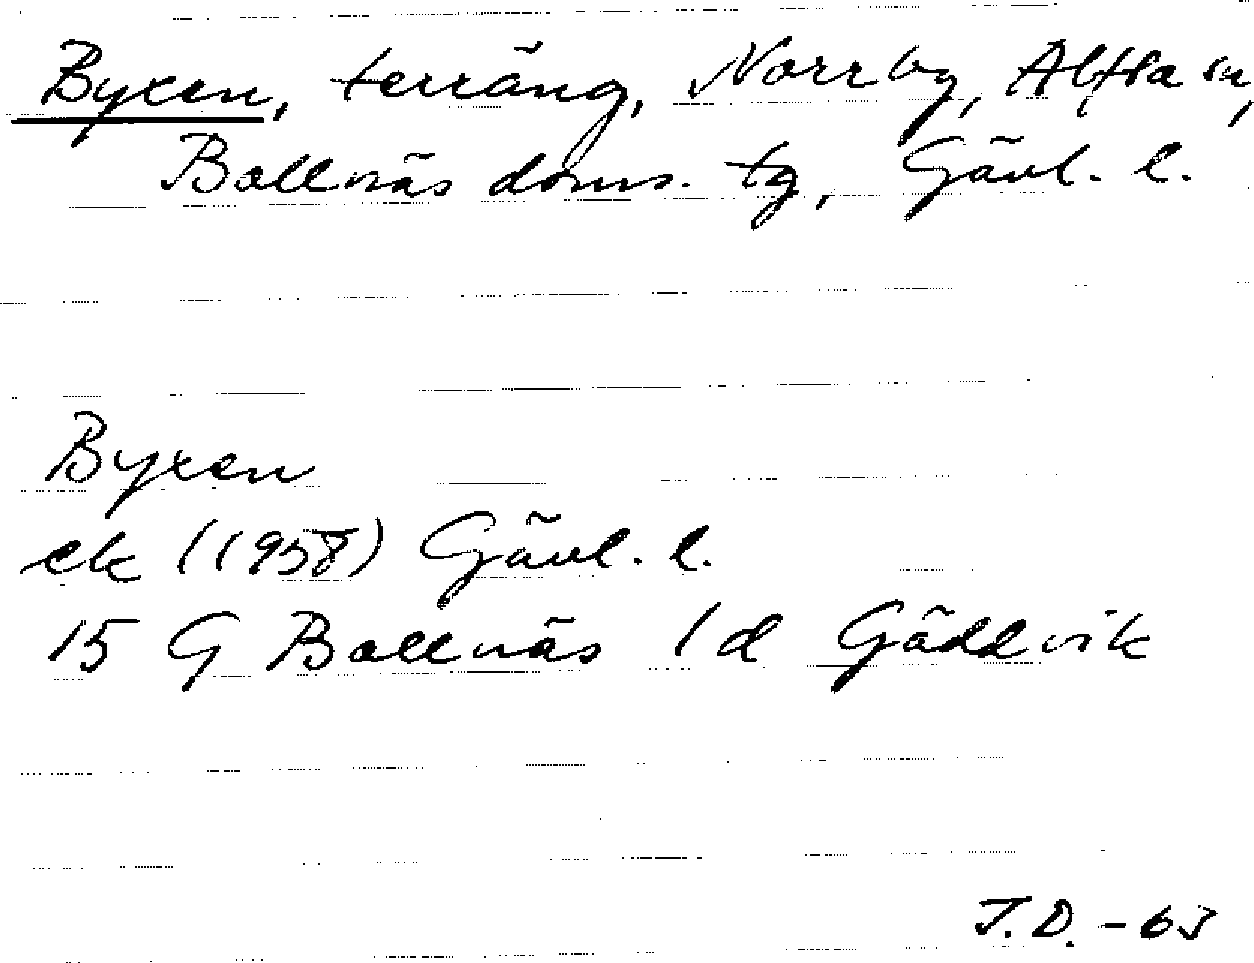 Byxen, terräng, Norrby, Alfta sn,
Bollnäs doms. tg, Gävl. l.
Byxen
ek (1958) Gävl. l.
15 G Bollnäs 1d Gäddvik
J.D. -63